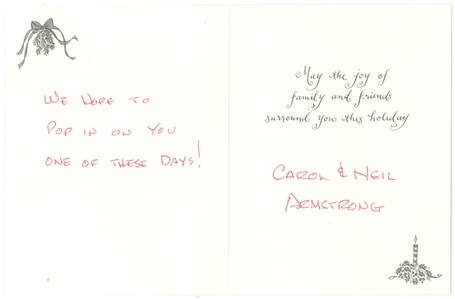 WE HOPE TO
POP IN ON YOU
ONE OF THESE DAYS!
May the joy of
family and friends
surround you this holiday
CAROL & NEIL
ARMSTRONG